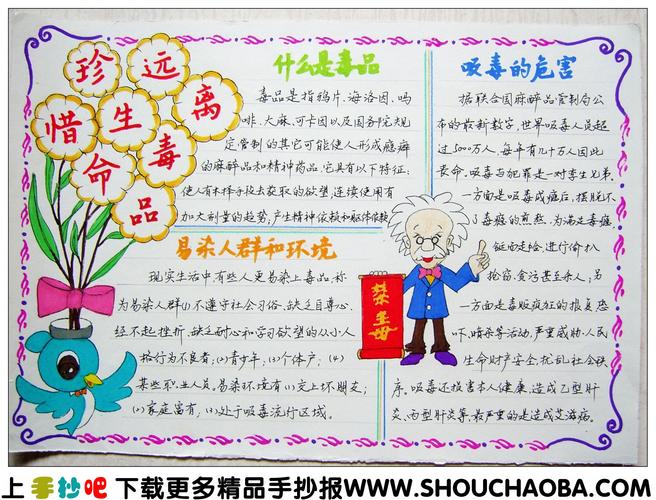 珍惜生命
远离毒品
什么是毒品
毒品是指鸦片、海洛因、吗
啡、大麻、可卡因以及国务院规
定管制的其它可能使人形成瘾癖
的麻醉品和精神药品。它具以下特征:
使人有不择手段去获取的欲望;连续使用有
加大剂量的趋势;产生精神依赖和躯体依赖
易染人群和环境
现实生活中有些人更易染上毒品,称
为易染人群(1)不遵守社会习俗、缺乏自尊心、
经不起挫折、缺乏耐心和学习欲望的从小人
格行为不良者;(2)青少年;(3)个体户;(4)
某些职业人员,易染环境有(1)交上坏朋友;
(2)家庭富有;(3)处于吸毒流行区域。
禁毒
吸毒的危害
据联合国麻醉品管制局公
布的最新数字,世界吸毒人员超
过5000万人,每年有几十万人因此
丧命。吸毒与犯罪是一对孪生兄弟.
一方面是吸毒成瘾后,摆脱不
了毒瘾的煎熬,为满足毒瘾,
铤而走险,进行偷扒、
抢窃、贪污甚至杀人;另
一方面是毒贩疯狂的报复恐
吓、暗杀等活动,严重威胁人民
生命财产安全,扰乱社会秩
序。吸毒还损害本人健康,造成乙型肝
炎、丙型肝炎等,最严重的是造成艾滋病。
上手抄吧下载更多精品手抄报WWW.SHOUCHAOBA.COM